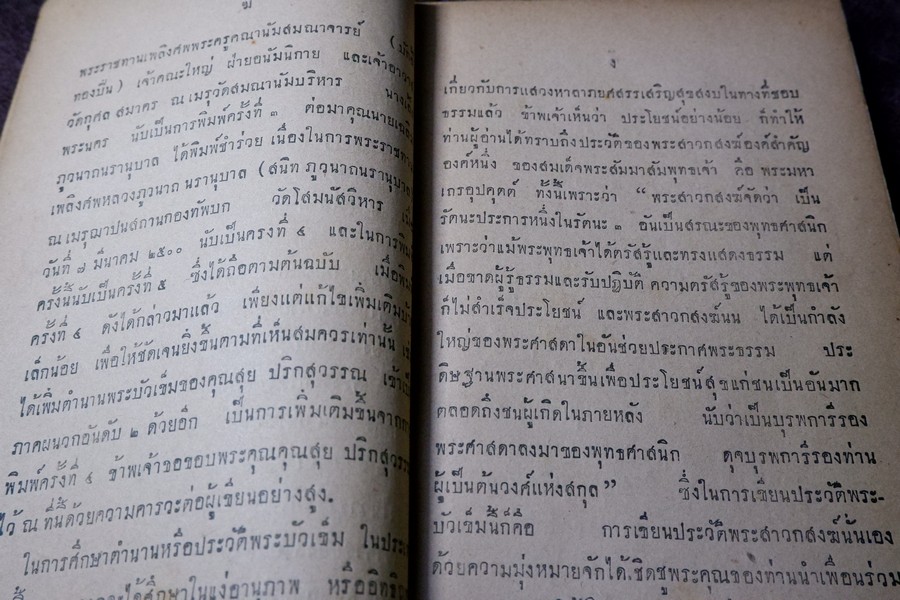 ฆ
พระราชทานเพลิงศพพระครูคณานัมสมณาจารย์
ทองปั้น) เจ้าคณะใหญ่ ฝ่ายอนัมนิกาย และเจ้าอาวาส
วัดกุศลสมาคร ณ เมรุวัดสมณานัมบริหาร
พระนคร นับเป็นการพิมพ์ครั้งที่ ๓ ต่อมาคุณนาย
ภูวนาถนรานุบาล ได้พิมพ์ชำร่วย เนื่องในการพระราชทาน
เพลิงศพหลวงภูวนาถ นรานุบาล (สนิท ภูวนาถนรานุบาล
ณ เมรุฌาปนสถานกองทัพบก วัดโสมนัสวิหาร
วันที่ ๗ มีนาคม ๒๕๐๐ นับเป็นครงที่ ๔ และในการพิมพ์
ครั้งนี้นับเป็นครั้งที่ ๕ ซึ่งได้ถือตามต้นฉบับ เมื่อพิมพ์
ครั้งที่ ๔ ดังได้กล่าวมาแล้ว เพียงแต่แก้ไขเพิ่มเติมบ้าง
เล็กน้อย เพื่อให้ชัดเจนยิ่งขึ้นตามที่เห็นสมควรเท่านั้น
ได้เพิ่มตำนานพระบัวเข็มของคุณสุย ปริกสุวรรณ เข้า
ภาคผนวกอันดับ ๒ ด้วยอีก เป็นการเพิ่มเติมขึ้นจาก
พิมพ์ครั้งที่ ๔ ข้าพเจ้าขอขอบพระคุณคุณสุย ปริกสุวรร
ไว้ ณ ที่นี้ด้วยความคารวะต่อผู้เขียนอย่างสูง.
ในการศึกษาตำนานหรือประวัติพระบัวเข็ม ในประ
ได้ศึกษาในแง่อานุภาพ หรืออิทธิ
ง
เกี่ยวกับการแสวงหาลาภยศสรรเสริญสุขสงบในทางที่ชอบ
ธรรมแล้ว ข้าพเจ้าเห็นว่า ประโยชน์อย่างน้อย ก็ทำให้
ท่านผู้อ่านได้ทราบถึงประวัติของพระสาวกสงฆ์องค์สำคัญ
องค์หนึ่ง ของสมเด็จพระสัมมาสัมพุทธเจ้า คือ พระมหา
เถรอุปคุตต์ ทั้งนี้เพราะว่า “ พระสาวกสงฆ์จัดว่า เป็น
รัตนะประการหนึ่งในรัตนะ ๓ อันเป็นสรณะของพุทธศาสนิก
เพราะว่าแม้พระพุทธเจ้าได้ตรัสรู้และทรงแสดงธรรม แต่
เมื่อขาดผู้รู้ธรรมและรับปฏิบัติ ความตรัสรู้ของพระพุทธเจ้า
ก็ไม่สำเร็จประโยชน์ และพระสาวกสงฆ์นน ได้เป็นกำลัง
ใหญ่ของพระศาสดาในอันช่วยประกาศพระธรรม ประ
ดิษฐานพระศาสนาขึ้นเพื่อประโยชน์สุขแก่ชนเป็นอันมาก
ตลอดถึงชนผู้เกิดในภายหลัง นับว่าเป็นบุรพการีรอง
พระศาสดาลงมาของพุทธศาสนิก ดุจบุรพการีรองท่าน
ผู้เป็นต้นวงศ์แห่งสกุล” ซึ่งในการเขียนประวัติพระ-
บัวเข็มนี้ก็คือ การเขียนประวัติพระสาวกสงฆ์นั่นเอง
ด้วยความมุ่งหมายจักได้เชิดชูพระคุณของท่านนำเพื่อนร่วม